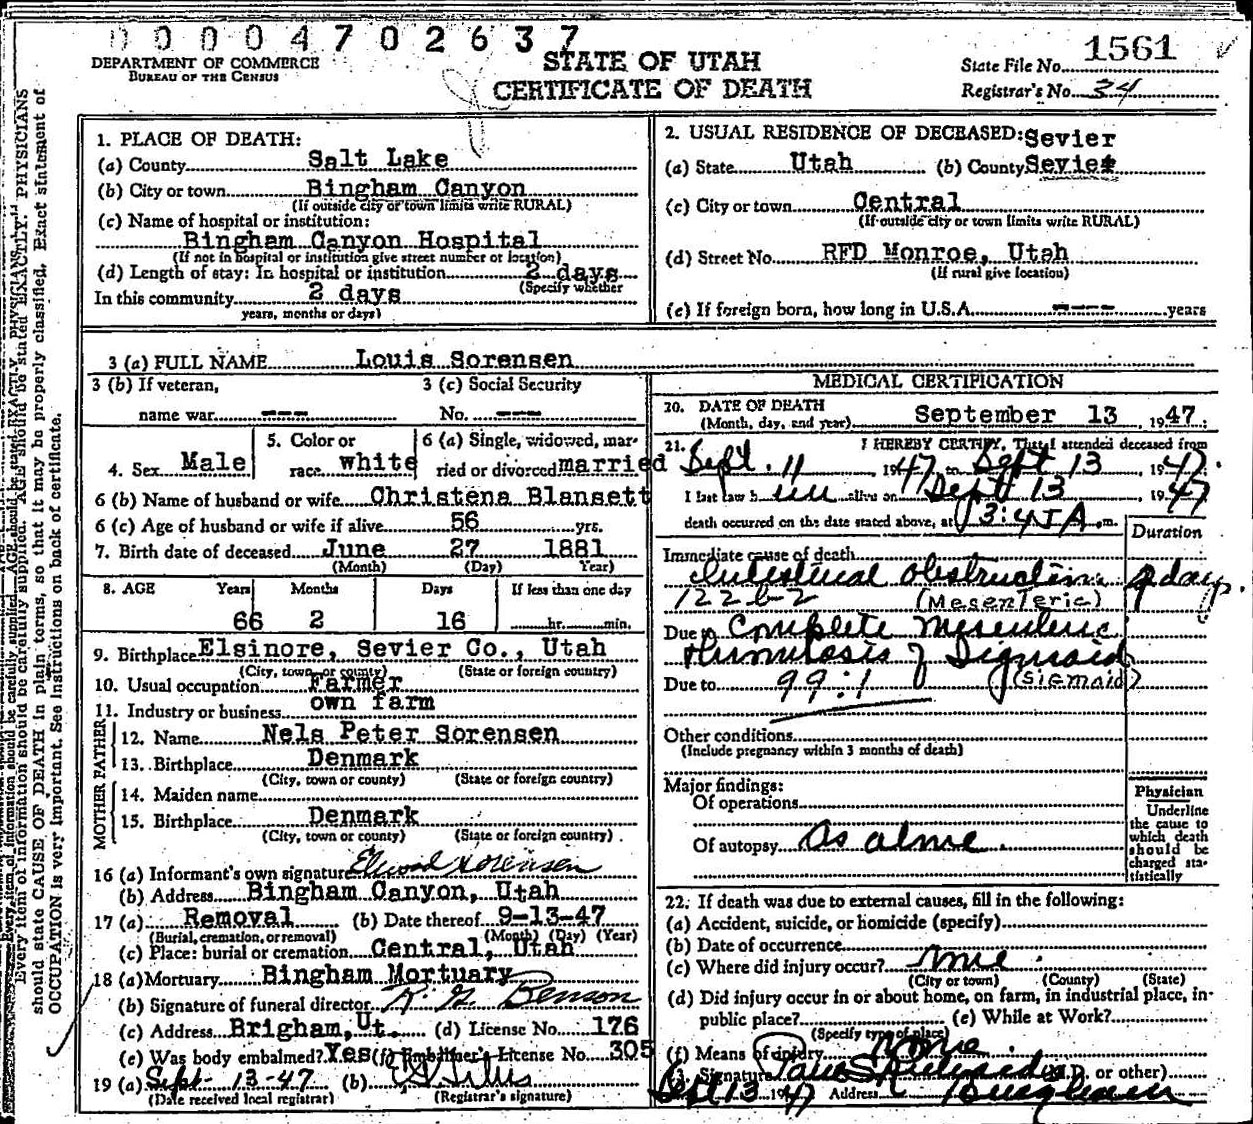 00004702637
DEPARTMENT OF COMMERCE
BUREAU OF THE CENSUS
STATE OF UTAH
CERTIFICATE OF DEATH
State File No. 1561
Registrar's No. 34
Every item of information should be carefully supplied. AGE should be stated EXACTLY. PHYSICIANS
should state CAUSE OF DEATH in plain terms, so that it may be properly classified. Exact statement of
OCCUPATION is very important. See instructions on back of certificate.
1. PLACE OF DEATH:
(a) County Salt Lake
(b) City or town Bingham Canyon
(If outside city or town limits write RURAL)
(c) Name of hospital or institution:
Bingham Canyon Hospital
(If not in hospital or institution give street number or location)
(d) Length of stay: In hospital or institution 2 days
(Specify whether
In this community 2 days
years, months or days)
2. USUAL RESIDENCE OF DECEASED: Sevier
(a) State Utah (b) County Sevier
(c) City or town Central
(If outside city or town limits write RURAL)
(d) Street No. RFD Monroe, Utah
(If rural give location)
(e) If foreign born, how long in U.S.A. ---- years
3 (a) FULL NAME Louis Sorensen
3 (b) If veteran,
name war ---
3 (c) Social Security
No. ---
4. Sex Male
5. Color or
race white
6 (a) Single, widowed, mar-
ried or divorced married
6 (b) Name of husband or wife Christena Blansett
6 (c) Age of husband or wife if alive 56 yrs.
7. Birth date of deceased June 27 1881
(Month) (Day) Year)
8. AGE Years Months Days If less than one day
66 2 16 hr. min.
9. Birthplace Elsinore, Sevier Co., Utah
(City, town or county) (State or foreign country)
10. Usual occupation Farmer
11. Industry or business own farm
FATHER
12. Name Nels Peter Sorensen
13. Birthplace Denmark
(City, town or county) (State or foreign country)
MOTHER
14. Maiden name
15. Birthplace Denmark
(City, town or county) (State or foreign country)
16 (a) Informant's own signature Elwood Sorensen
(b) Address Bingham Canyon, Utah
17 (a) Removal (b) Date thereof 9-13-47
(Burial, cremation, or removal) (Month) (Day) (Year)
(c) Place: burial or cremation Central, Utah
18 (a) Mortuary Bingham Mortuary
(b) Signature of funeral director Benson
(c) Address Brigham, Ut. (d) License No. 176
(e) Was body embalmed? Yes (f) Embalmer's License No. 305
19 (a) Sept- 13-47 (b)
(Date received local registrar) (Registrar's signature)
MEDICAL CERTIFICATION
20. DATE OF DEATH
(Month, day, and year) September 13, 1947
21. I HEREBY CERTIFY, That I attended deceased from
Sept. 11, 1947 to Sept 13, 1947.
I last saw h im alive on Sept 13, 1947
death occurred on the date stated above, at 3:45 A.m.
Duration
Immediate cause of death
Intestinal obstruction 9 days.
122b-2 (Mesenteric)
Due to Complete mesenteric
thrombosis of Sigmoid
Due to 99:1 (Sigmoid)
Other conditions
(Include pregnancy within 3 months of death)
Major findings:
Of operations
Of autopsy As above.
Physician
Underline
the cause to
which death
should be
charged sta-
tistically
22. If death was due to external causes, fill in the following:
(a) Accident, suicide, or homicide (specify)
(b) Date of occurrence
(c) Where did injury occur? None.
(City or town) (County) (State)
(d) Did injury occur in or about home, on farm, in industrial place, in-
public place? (e) While at Work?
(Specify type of place)
(f) Means of injury None.
Signature Paul S Richards (M.D. or other)
Sept 13 1947 Address Bingham